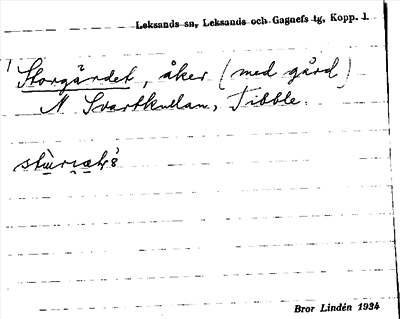 Leksands sn, Leksands och Gagnefs tg, Kopp. l.
Storgärdet, åker (med gård)
N Svartkullan, Tibble.
Bror Lindén 1934